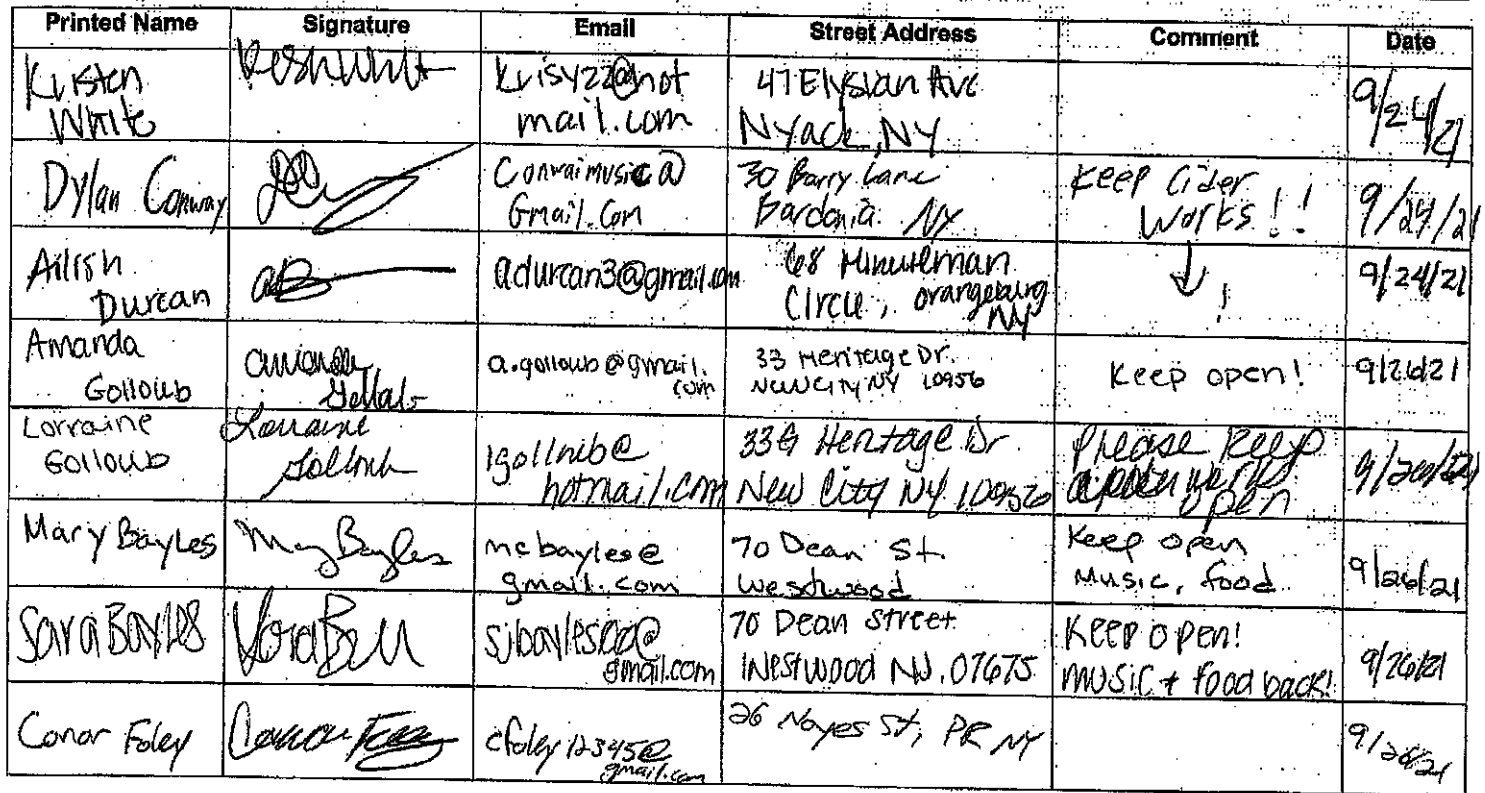 Printed Name Signature Email Street Address Comment Date
Kristen
White
krisy22@hot
mail.com
47 Elysian Ave
Nyack, NY
9/24/21
Dylan Conway
Conwaimusic@
Gmail.Com
30 Barry Lane
Bardonia NY
Keep Cider
Works!!
9/24/21
Ailish
Durcan
adurcan3@gmail.com
68 Minuteman
Circle, orangeburg
NY
↓!
9/24/21
Amanda
Golloub
Amanda
a.golloub@gmail.
com
33 Heritage Dr.
New City NY 10956
Keep open!
9/26/21
Lorraine
Golloub
Lorraine
hotmail.com
33G Heritage Dr
New City NY 10956
Please keep
open
9/26/21
Mary Bayles
Mary Bayles
mcbayles@
gmail.com
70 Dean St
Westwood
Keep open
Music, food
9/26/21
Sara Bayles
gmail.com
70 Dean Street
Westwood NJ. 07675
Keep open!
music + food back!
9/26/21
Conor Foley
cfoley12345@
gmail.com
26 Noyes St, PR NY
9/26/21